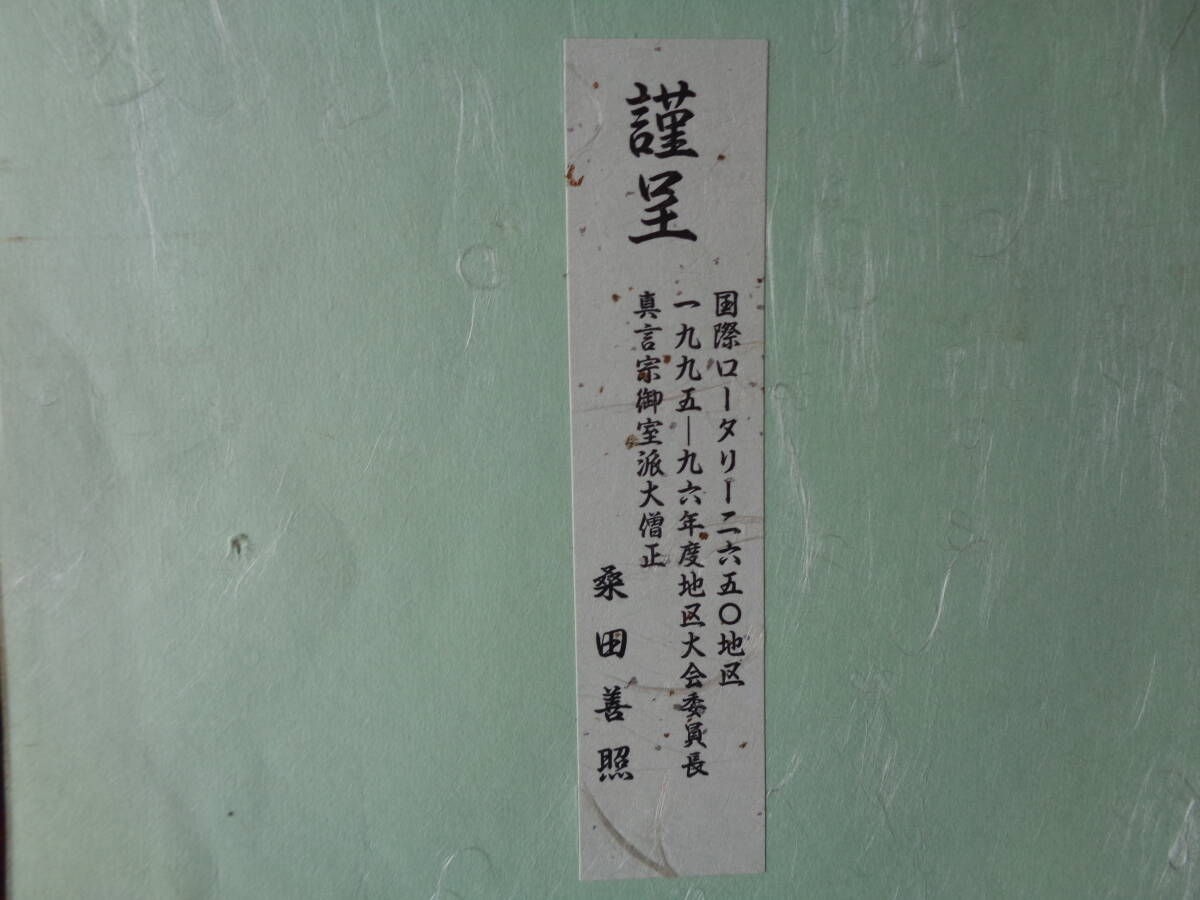 謹呈
国際ロータリー二六五〇地区
一九九五―九六年度地区大会委員長
真言宗御室派大僧正
桑田善照